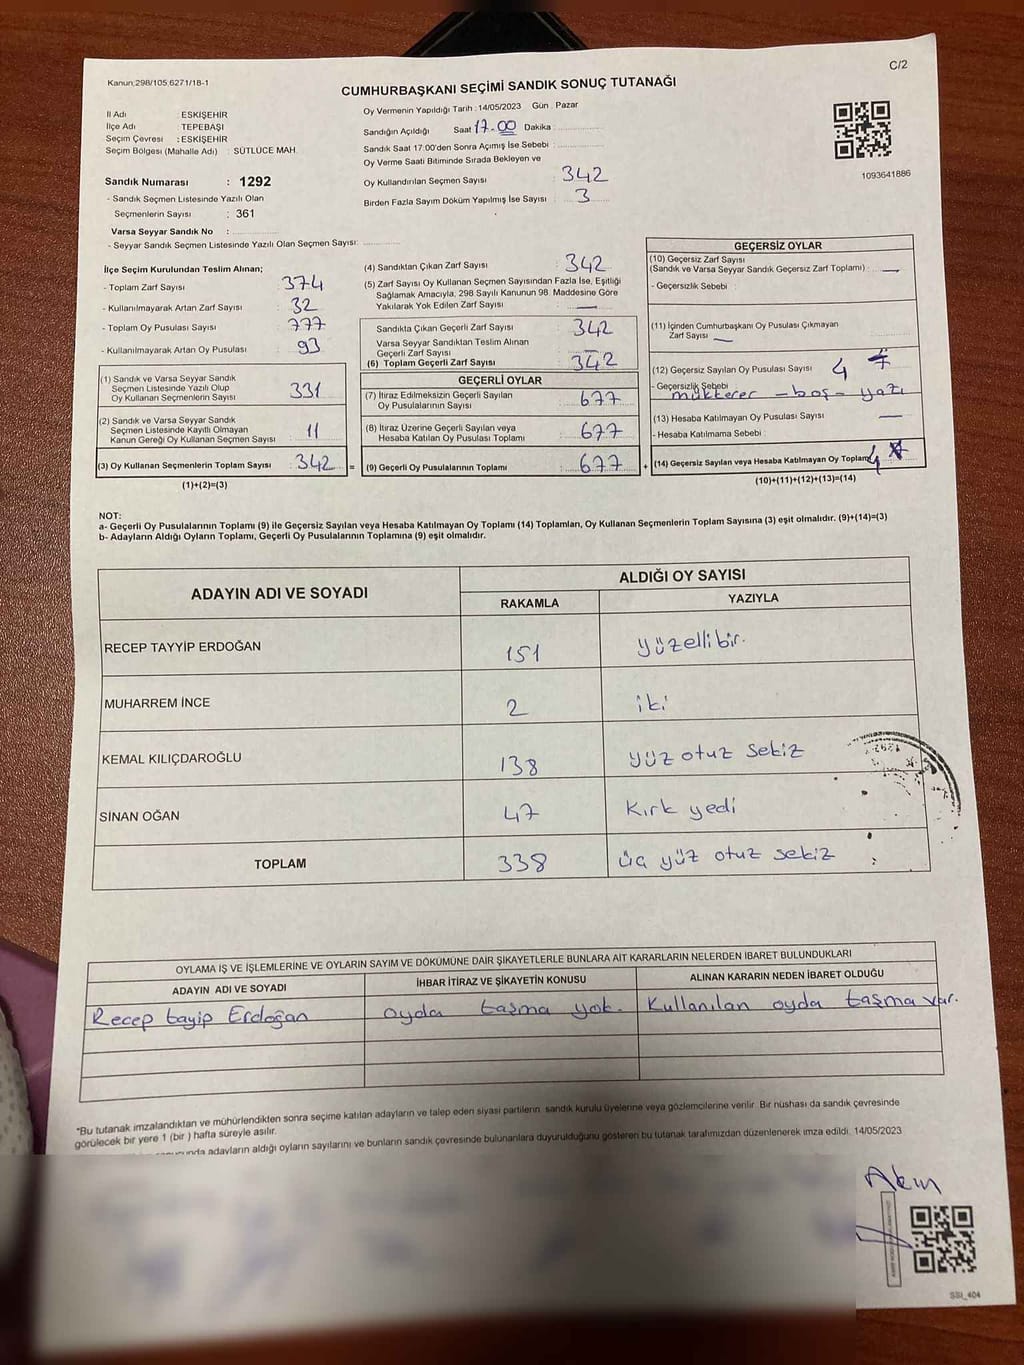 Kanun:298/105,6271/18-1
C/2
CUMHURBAŞKANI SEÇİMİ SANDIK SONUÇ TUTANAĞI
İl Adı : ESKİŞEHİR
İlçe Adı : TEPEBAŞI
Seçim Çevresi : ESKİŞEHİR
Seçim Bölgesi (Mahalle Adı) : SÜTLÜCE MAH.
Sandık Numarası : 1292
- Sandık Seçmen Listesinde Yazılı Olan
Seçmenlerin Sayısı : 361
Varsa Seyyar Sandık No :
- Seyyar Sandık Seçmen Listesinde Yazılı Olan Seçmen Sayısı:
Oy Vermenin Yapıldığı Tarih : 14/05/2023 Gün : Pazar
Sandığın Açıldığı Saat 17.00 Dakika :
Sandık Saat 17:00'den Sonra Açımış İse Sebebi :
Oy Verme Saati Bitiminde Sırada Bekleyen ve
Oy Kullandırılan Seçmen Sayısı : 342
Birden Fazla Sayım Döküm Yapılmış İse Sayısı : 3
1093641886
İlçe Seçim Kurulundan Teslim Alınan;
- Toplam Zarf Sayısı : 374
- Kullanılmayarak Artan Zarf Sayısı : 32
- Toplam Oy Pusulası Sayısı : 777
- Kullanılmayarak Artan Oy Pusulası : 93
(1) Sandık ve Varsa Seyyar Sandık
Seçmen Listesinde Yazılı Olup
Oy Kullanan Seçmenlerin Sayısı : 331
(2) Sandık ve Varsa Seyyar Sandık
Seçmen Listesinde Kayıtlı Olmayan
Kanun Gereği Oy Kullanan Seçmen Sayısı : 11
(3) Oy Kullanan Seçmenlerin Toplam Sayısı : 342 =
(1)+(2)=(3)
(4) Sandıktan Çıkan Zarf Sayısı : 342
(5) Zarf Sayısı Oy Kullanan Seçmen Sayısından Fazla İse, Eşitliği
Sağlamak Amacıyla, 298 Sayılı Kanunun 98. Maddesine Göre
Yakılarak Yok Edilen Zarf Sayısı : —
Sandıkta Çıkan Geçerli Zarf Sayısı : 342
Varsa Seyyar Sandıktan Teslim Alınan
Geçerli Zarf Sayısı : —
(6) Toplam Geçerli Zarf Sayısı : 342
GEÇERLİ OYLAR
(7) İtiraz Edilmeksizin Geçerli Sayılan
Oy Pusulalarının Sayısı : 677
(8) İtiraz Üzerine Geçerli Sayılan veya
Hesaba Katılan Oy Pusulası Toplamı : 677
(9) Geçerli Oy Pusulalarının Toplamı : 677 +
GEÇERSİZ OYLAR
(10) Geçersiz Zarf Sayısı
(Sandık ve Varsa Seyyar Sandık Geçersiz Zarf Toplamı) : —
- Geçersizlik Sebebi :
(11) İçinden Cumhurbaşkanı Oy Pusulası Çıkmayan
Zarf Sayısı —
(12) Geçersiz Sayılan Oy Pusulası Sayısı : 4
- Geçersizlik Sebebi
mükkerer - boş - yazı
(13) Hesaba Katılmayan Oy Pusulası Sayısı —
- Hesaba Katılmama Sebebi :
(14) Geçersiz Sayılan veya Hesaba Katılmayan Oy Toplamı 4
(10)+(11)+(12)+(13)=(14)
NOT:
a- Geçerli Oy Pusulalarının Toplamı (9) ile Geçersiz Sayılan veya Hesaba Katılmayan Oy Toplamı (14) Toplamları, Oy Kullanan Seçmenlerin Toplam Sayısına (3) eşit olmalıdır. (9)+(14)=(3)
b- Adayların Aldığı Oyların Toplamı, Geçerli Oy Pusulalarının Toplamına (9) eşit olmalıdır.
ADAYIN ADI VE SOYADI
ALDIĞI OY SAYISI
RAKAMLA YAZIYLA
RECEP TAYYİP ERDOĞAN 151 yüzellibir.
MUHARREM İNCE 2 iki
KEMAL KILIÇDAROĞLU 138 yüz otuz sekiz
SİNAN OĞAN 47 kırk yedi
TOPLAM 338 üç yüz otuz sekiz
OYLAMA İŞ VE İŞLEMLERİNE VE OYLARIN SAYIM VE DÖKÜMÜNE DAİR ŞİKAYETLERLE BUNLARA AİT KARARLARIN NELERDEN İBARET BULUNDUKLARI
ADAYIN ADI VE SOYADI İHBAR İTİRAZ VE ŞİKAYETİN KONUSU ALINAN KARARIN NEDEN İBARET OLDUĞU
Recep tayip Erdoğan oyda taşma yok. Kullanılan oyda taşma var.
*Bu tutanak imzalandıktan ve mühürlendikten sonra seçime katılan adayların ve talep eden siyasi partilerin sandık kurulu üyelerine veya gözlemcilerine verilir. Bir nüshası da sandık çevresinde
görülecek bir yere 1 (bir ) hafta süreyle asılır.
adayların aldığı oyların sayılarını ve bunların sandık çevresinde bulunanlara duyurulduğunu gösteren bu tutanak tarafımızdan düzenlenerek imza edildi. 14/05/2023
Akın
SSI_404